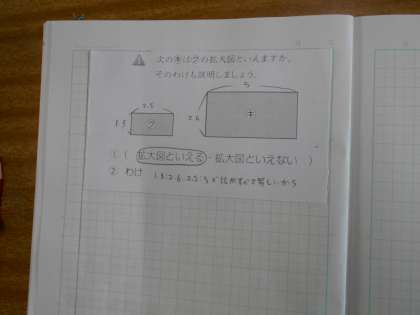 次のキはクの拡大図といえますか。
そのわけも説明しましょう。
2.5
1.3
ク
5
2.6
キ
① ( 拡大図といえる・拡大図といえない )
② わけ 1.3:2.6, 2.5:5で比がすべて等しいから